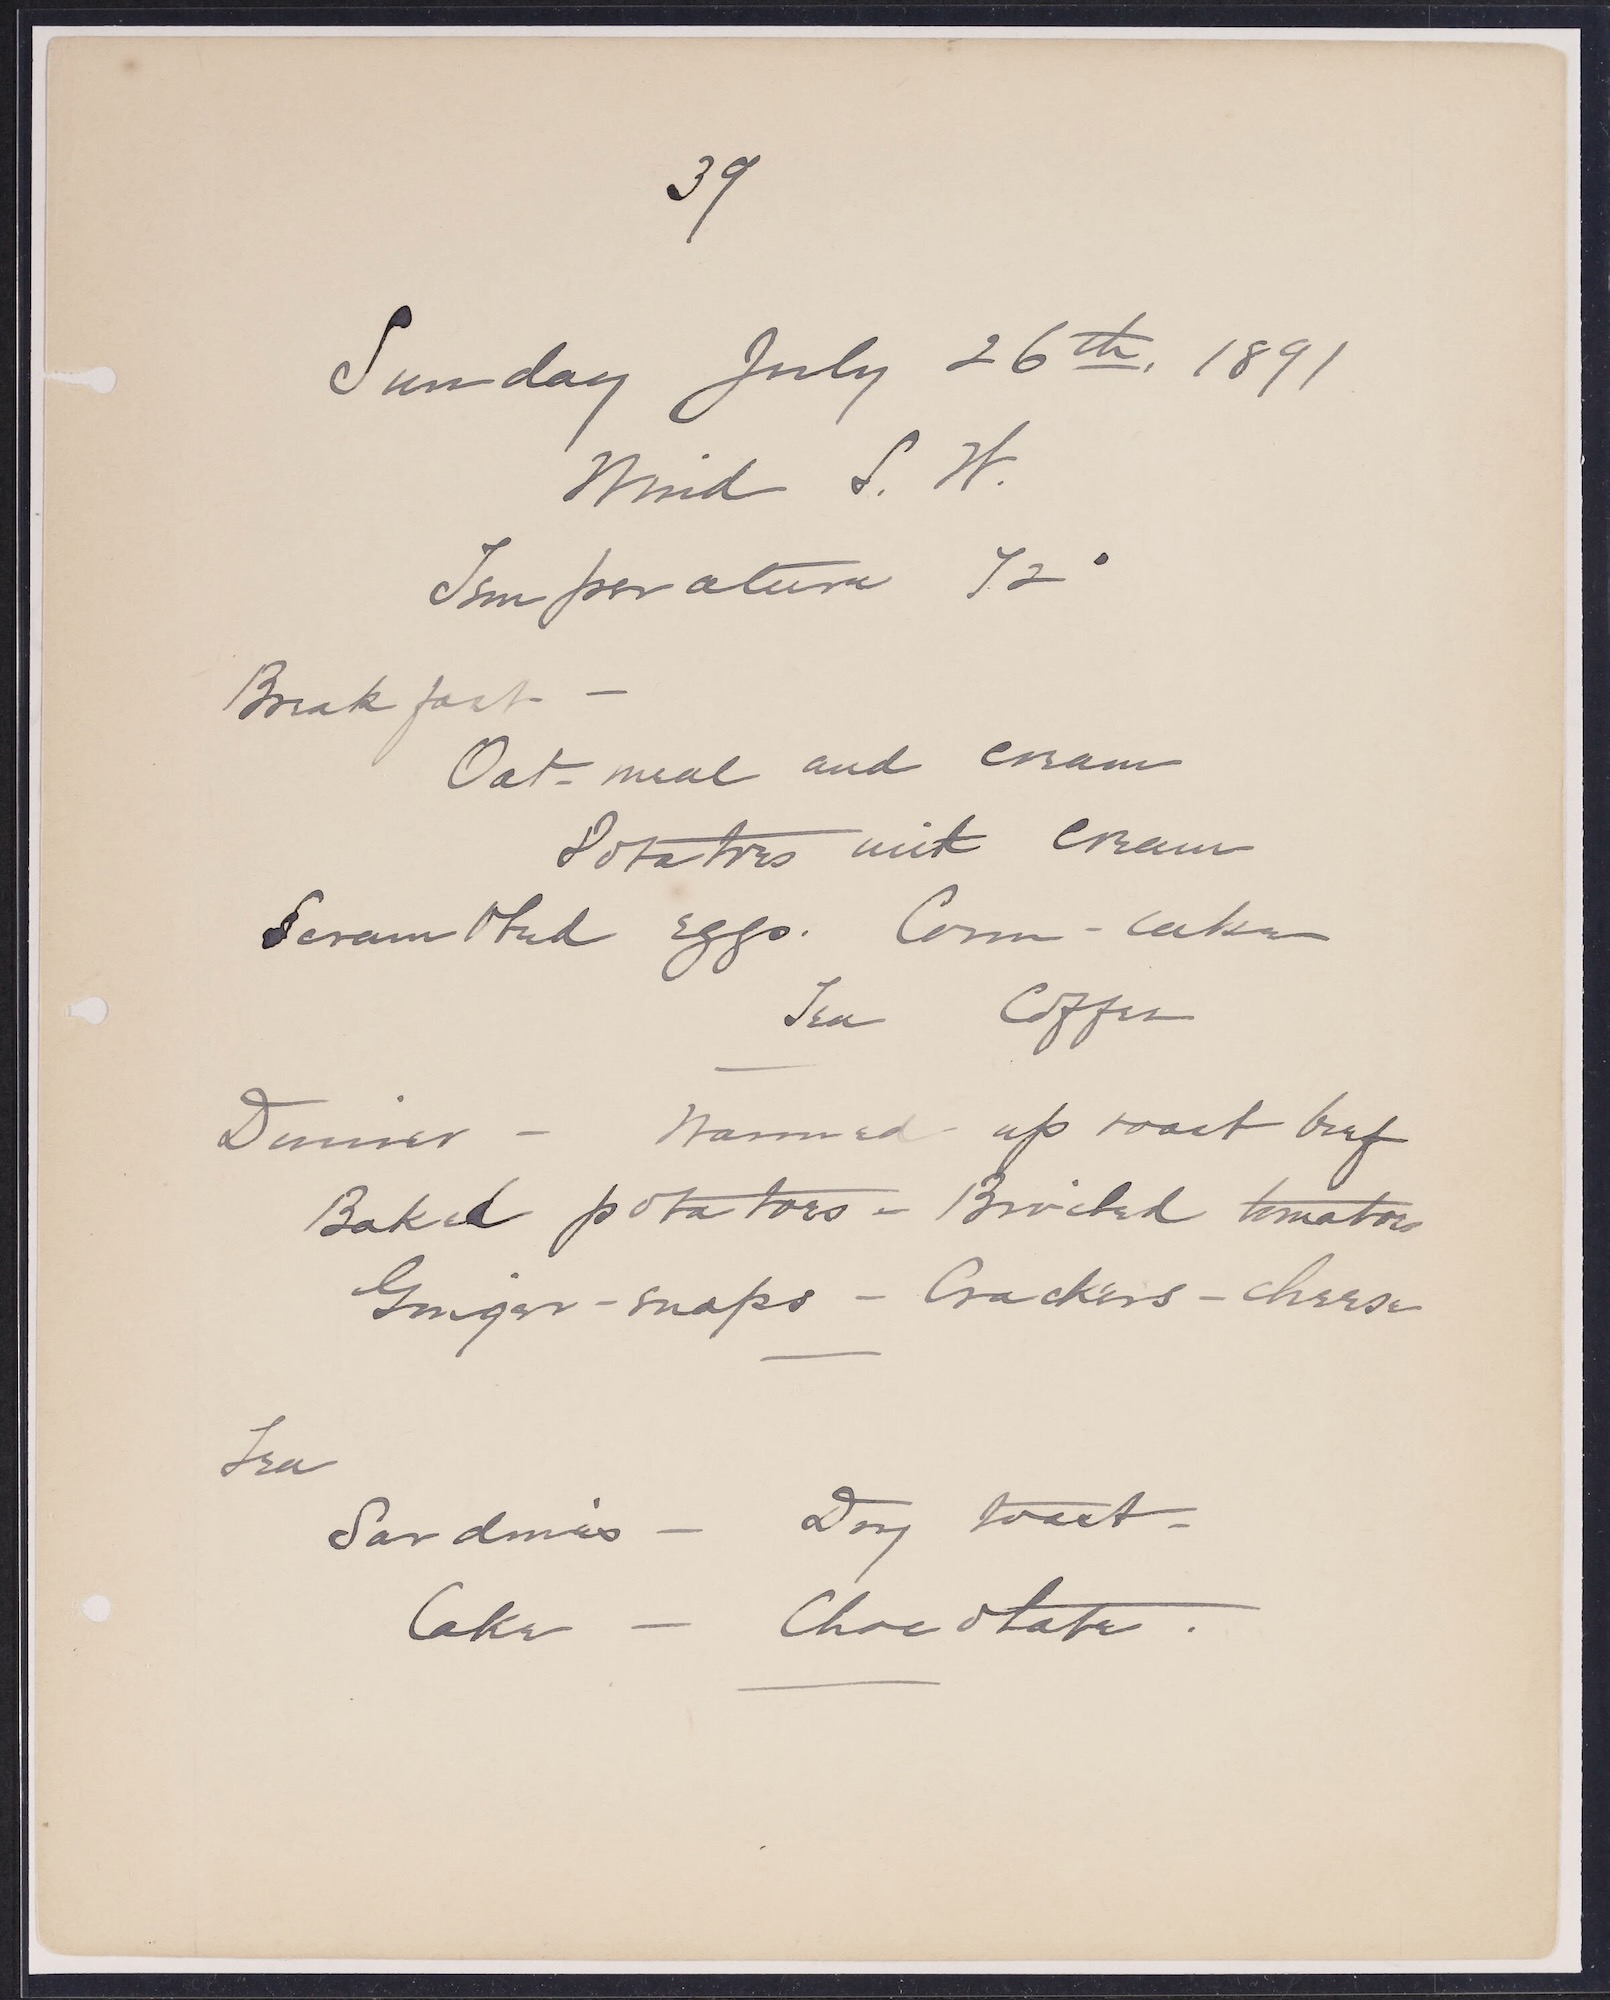 39
Sunday July 26th. 1891
Wind S. W.
Temperature 72°
Breakfast -
Oat-meal and cream
Potatoes with cream
Scrambled eggs. Corn-cake
Tea Coffee
Dinner - Warmed up roast beef
Baked potatoes - Broiled tomatoes
Ginger-snaps - Crackers - cheese
Tea
Sardines - Dry toast -
Cake - Chocolate.